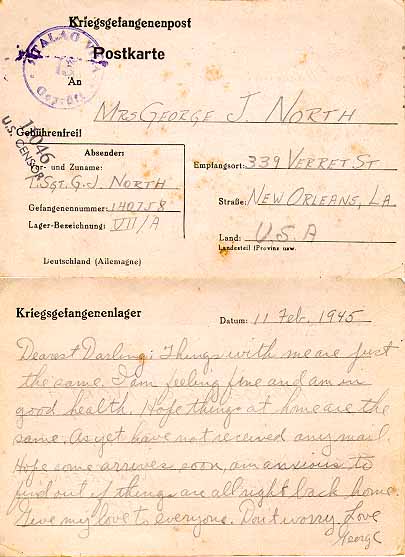 Kriegsgefangenenpost
STALAG VII A
Postkarte
Geprüft
An
MRS GEORGE J. NORTH
Gebührenfrei!
U.S. CENSOR
Absender:
Vor- und Zuname:
T.SGT. G. J. NORTH
Gefangenennummer: 140758
Lager-Bezeichnung: VII/A
Deutschland (Allemagne)
Empfangsort: 339 VERRET ST
Straße: NEW ORLEANS, LA.
Land: U.S.A
Landesteil (Provinz usw.
Kriegsgefangenenlager
Datum: 11 Feb. 1945
Dearest Darling: Things with me are just
the same. I am feeling fine and am in
good health. Hope things at home are the
same. As yet have not received any mail.
Hope some arrives soon, am anxious to
find out if things are all right back home.
Give my love to everyone. Don't worry. Love
George